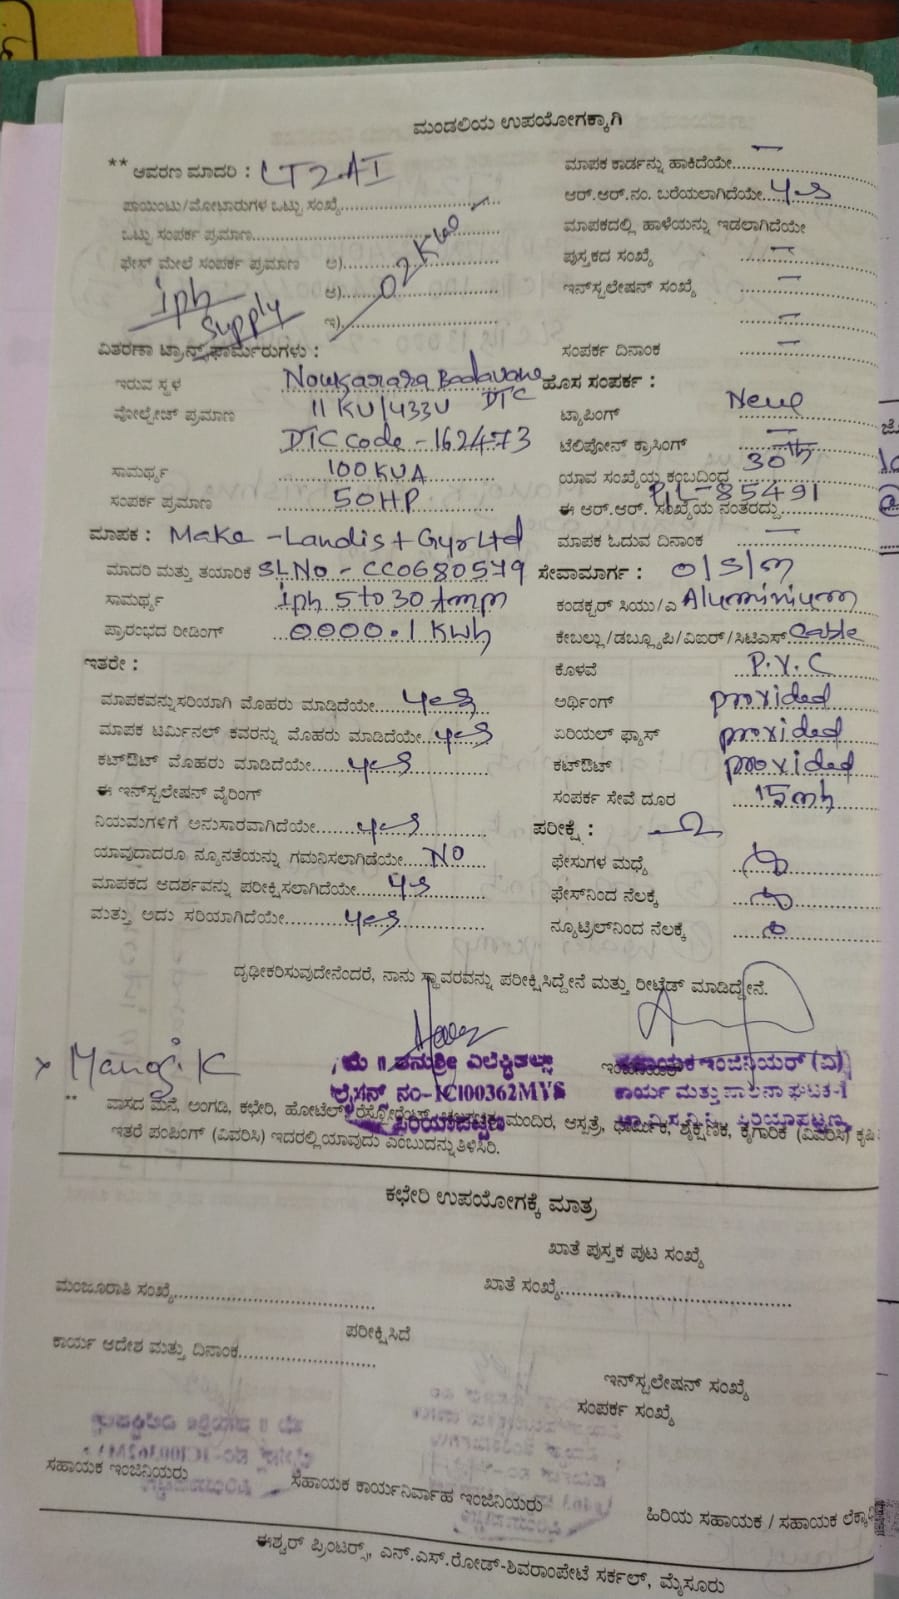 ಮಂಡಲಿಯ ಉಪಯೋಗಕ್ಕಾಗಿ
** ಆವರಣ ಮಾದರಿ : LT2.AI
ಮಾಪಕ ಕಾರ್ಡನ್ನು ಹಾಕಿದೆಯೇ.....–
ಪಾಯಿಂಟು/ಮೋಟಾರುಗಳ ಒಟ್ಟು ಸಂಖ್ಯೆ.....
ಆರ್.ಆರ್.ನಂ. ಬರೆಯಲಾಗಿದೆಯೇ yes
ಒಟ್ಟು ಸಂಪರ್ಕ ಪ್ರಮಾಣ.....
ಮಾಪಕದಲ್ಲಿ ಹಾಳೆಯನ್ನು ಇಡಲಾಗಿದೆಯೇ
ಫೇಸ್ ಮೇಲೆ ಸಂಪರ್ಕ ಪ್ರಮಾಣ ಅ)..... 02 KW
ಪುಸ್ತಕದ ಸಂಖ್ಯೆ –
ಆ).....
ಇನ್‌ಸ್ಟಲೇಷನ್ ಸಂಖ್ಯೆ –
1ph Supply
ಇ).....
–
ವಿತರಣಾ ಟ್ರಾನ್ಸ್‌ಫಾರ್ಮರುಗಳು :
ಸಂಪರ್ಕ ದಿನಾಂಕ –
ಇರುವ ಸ್ಥಳ Noukarara Badavane DTC
ಹೊಸ ಸಂಪರ್ಕ :
ವೋಲ್ಟೇಜ್ ಪ್ರಮಾಣ 11 KV/433V
ಟ್ಯಾಪಿಂಗ್ New
DTC code - 162473
ಟೆಲಿಫೋನ್ ಕ್ರಾಸಿಂಗ್ –
ಸಾಮರ್ಥ್ಯ 100 KVA
ಯಾವ ಸಂಖ್ಯೆಯ ಕಂಬದಿಂದ 30th
ಸಂಪರ್ಕ ಪ್ರಮಾಣ 50HP
ಈ ಆರ್.ಆರ್. ಸಂಖ್ಯೆಯ ನಂತರದ್ದು 85491
ಮಾಪಕ : Make - Landis + Gyr Ltd
ಮಾಪಕ ಓದುವ ದಿನಾಂಕ –
ಮಾದರಿ ಮತ್ತು ತಯಾರಿಕೆ SLNo - CC0680579
ಸೇವಾಮಾರ್ಗ : O/S/M
ಸಾಮರ್ಥ್ಯ 1ph 5 to 30 Amp
ಕಂಡಕ್ಟರ್ ಸಿಯು/ಎ Aluminium
ಪ್ರಾರಂಭದ ರೀಡಿಂಗ್ 0000.1 KWh
ಕೇಬಲ್ಲು/ಡಬ್ಲ್ಯೂಪಿ/ವಿಐಆರ್/ಸಿಟಿಎಸ್ Cable
ಇತರೇ :
ಕೊಳವೆ P.V.C
ಮಾಪಕವನ್ನು ಸರಿಯಾಗಿ ಮೊಹರು ಮಾಡಿದೆಯೇ.....yes
ಅರ್ಥಿಂಗ್ provided
ಮಾಪಕ ಟರ್ಮಿನಲ್ ಕವರನ್ನು ಮೊಹರು ಮಾಡಿದೆಯೇ..yes
ಏರಿಯಲ್ ಫ್ಯೂಸ್ provided
ಕಟ್‌ಔಟ್ ಮೊಹರು ಮಾಡಿದೆಯೇ.....yes
ಕಟ್‌ಔಟ್ provided
ಈ ಇನ್‌ಸ್ಟಲೇಷನ್ ವೈರಿಂಗ್
ಸಂಪರ್ಕ ಸೇವೆ ದೂರ 15mh
ನಿಯಮಗಳಿಗೆ ಅನುಸಾರವಾಗಿದೆಯೇ.....yes
ಪರೀಕ್ಷೆ : Ω
ಯಾವುದಾದರೂ ನ್ಯೂನತೆಯನ್ನು ಗಮನಿಸಲಾಗಿಡೆಯೇ....NO
ಫೇಸುಗಳ ಮಧ್ಯೆ
ಮಾಪಕದ ಆದರ್ಶವನ್ನು ಪರೀಕ್ಷಿಸಲಾಗಿದೆಯೇ.....yes
ಫೇಸ್‌ನಿಂದ ನೆಲಕ್ಕೆ
ಮತ್ತು ಅದು ಸರಿಯಾಗಿದೆಯೇ.....yes
ನ್ಯೂಟ್ರಲ್‌ನಿಂದ ನೆಲಕ್ಕೆ
ದೃಢೀಕರಿಸುವುದೇನೆಂದರೆ, ನಾನು ಸ್ಥಾವರವನ್ನು ಪರೀಕ್ಷಿಸಿದ್ದೇನೆ ಮತ್ತು ರೀಟೈಡ್ ಮಾಡಿದ್ದೇನೆ.
x Manoj.K
ಮೆ ॥ ತನುಶ್ರೀ ಎಲೆಕ್ಟ್ರಿಕಲ್ಸ್
ಲೈಸನ್ಸ್ ನಂ-1CI00362MYS
ಪಿರಿಯಾಪಟ್ಟಣ
ಸಹಾಯಕ ಇಂಜಿನಿಯರ್ (ವಿ)
ಕಾರ್ಯ ಮತ್ತು ಪಾಲನಾ ಘಟಕ-1
ಪಿರಿಯಾಪಟ್ಟಣ
** ವಾಸದ ಮನೆ, ಅಂಗಡಿ, ಕಛೇರಿ, ಹೋಟೆಲ್, ರೆಸ್ಟೋರೆಂಟ್, ಮಂದಿರ, ಆಸ್ಪತ್ರೆ, ಧಾರ್ಮಿಕ, ಶೈಕ್ಷಣಿಕ, ಕೈಗಾರಿಕೆ (ವಿವರಿಸಿ) ಕೃಷಿ
ಇತರೆ ಪಂಪಿಂಗ್ (ವಿವರಿಸಿ) ಇದರಲ್ಲಿ ಯಾವುದು ಎಂಬುದನ್ನು ತಿಳಿಸಿರಿ.
ಕಛೇರಿ ಉಪಯೋಗಕ್ಕೆ ಮಾತ್ರ
ಖಾತೆ ಪುಸ್ತಕ ಪುಟ ಸಂಖ್ಯೆ
ಮಂಜೂರಾತಿ ಸಂಖ್ಯೆ.....
ಖಾತೆ ಸಂಖ್ಯೆ.....
ಪರೀಕ್ಷಿಸಿದೆ
ಕಾರ್ಯ ಆದೇಶ ಮತ್ತು ದಿನಾಂಕ.....
ಇನ್‌ಸ್ಟಲೇಷನ್ ಸಂಖ್ಯೆ
ಸಂಪರ್ಕ ಸಂಖ್ಯೆ
ಸಹಾಯಕ ಇಂಜಿನಿಯರು
ಸಹಾಯಕ ಕಾರ್ಯನಿರ್ವಾಹ ಇಂಜಿನಿಯರು
ಹಿರಿಯ ಸಹಾಯಕ / ಸಹಾಯಕ
ಈಶ್ವರ್ ಪ್ರಿಂಟರ‍್ಸ್, ಎನ್.ಎಸ್.ರೋಡ್-ಶಿವರಾಂಪೇಟೆ ಸರ್ಕಲ್, ಮೈಸೂರು